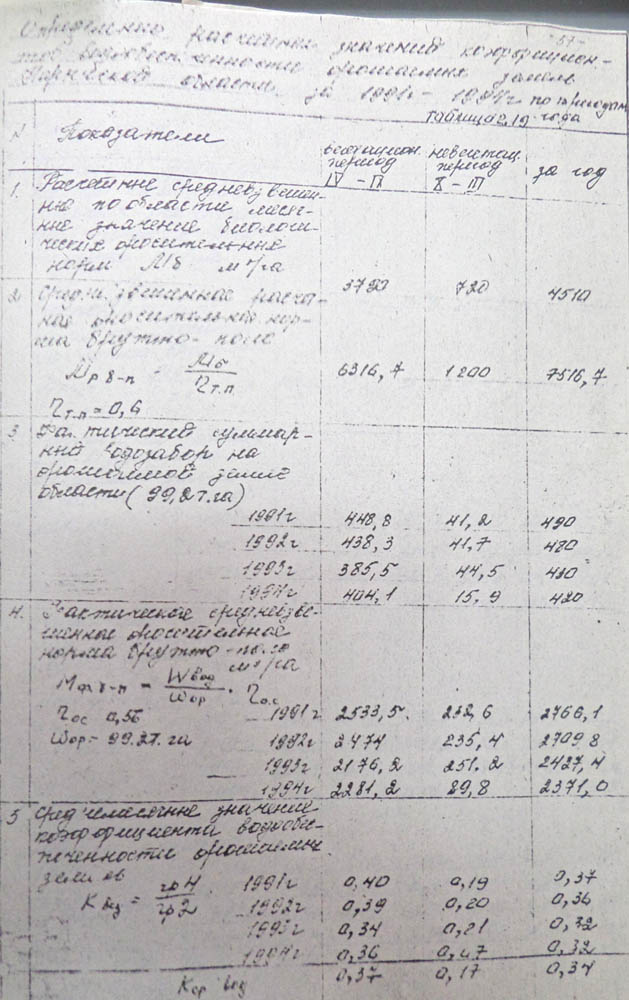 Определение расчетных значений коэффициен-
-57-
тов водообеспеченности орошаемых земель
области за 1991г - 1994г. по периодам
таблица 2.19 года
N Показатели вегетацион. период IV - IX невегетац. период X - III за год
1. Расчетные средневзвешен-
ные по области месяч-
ные значение биологи-
ческих оросительных
норм Мб м³/га 3790 720 4510
2 Средневзвешенная расчет-
ная оросительная нор-
ма брутто-поле
Мр б-п = Мб / ηт.п 6316,7 1200 7516,7
ηт.п = 0,6
3 Фактический суммар-
ный водозабор на
орошаемой земле
области (99,2 т.га)
1991г 448,8 41,2 490
1992г 438,3 41,7 480
1993г 385,5 44,5 430
1994г 404,1 15.9 420
4. Фактическое средневзве-
шенное оросительное
норма брутто-поле
м³/га
Мф б-п = Wвод / ωор · ηо.с
ηос 0,56 1991г 2533,5. 232,6 2766,1
ωор = 99.2т. га 1992г 2474 235,4 2709.8
1993г 2176,2 251.2 2427,4
1994г 2281,2 89,8 2371,0
5 Среднемесячные значение
коэффициента водообес-
печенности орошаемых
земель
К вд = гр4 / гр2 1991г 0,40 0,19 0,37
1992г 0,39 0,20 0,36
1993г 0,34 0,21 0,32
1994г 0,36 0,07 0,32
Кср вод 0,37 0,17 0,34